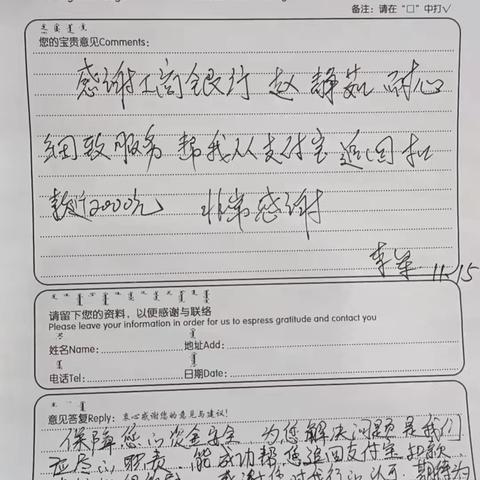 备注：请在“□”中打√
您的宝贵意见Comments：
感谢工商银行 赵静茹 耐心
细致服务 帮我从支付宝追回扣
款12000元 非常感谢
李军 11.15
请留下您的资料，以便感谢与联络
Please leave your information in order for us to espress gratitude and contact you
姓名Name： 地址Add：
电话Tel： 日期Date：
意见答复Reply：衷心感谢您的意见与建议！
保障您的资金安全 为您解决问题是我们
应尽的职责 能成功帮您追回支付宝扣款
感谢您对我行的认可 期待为